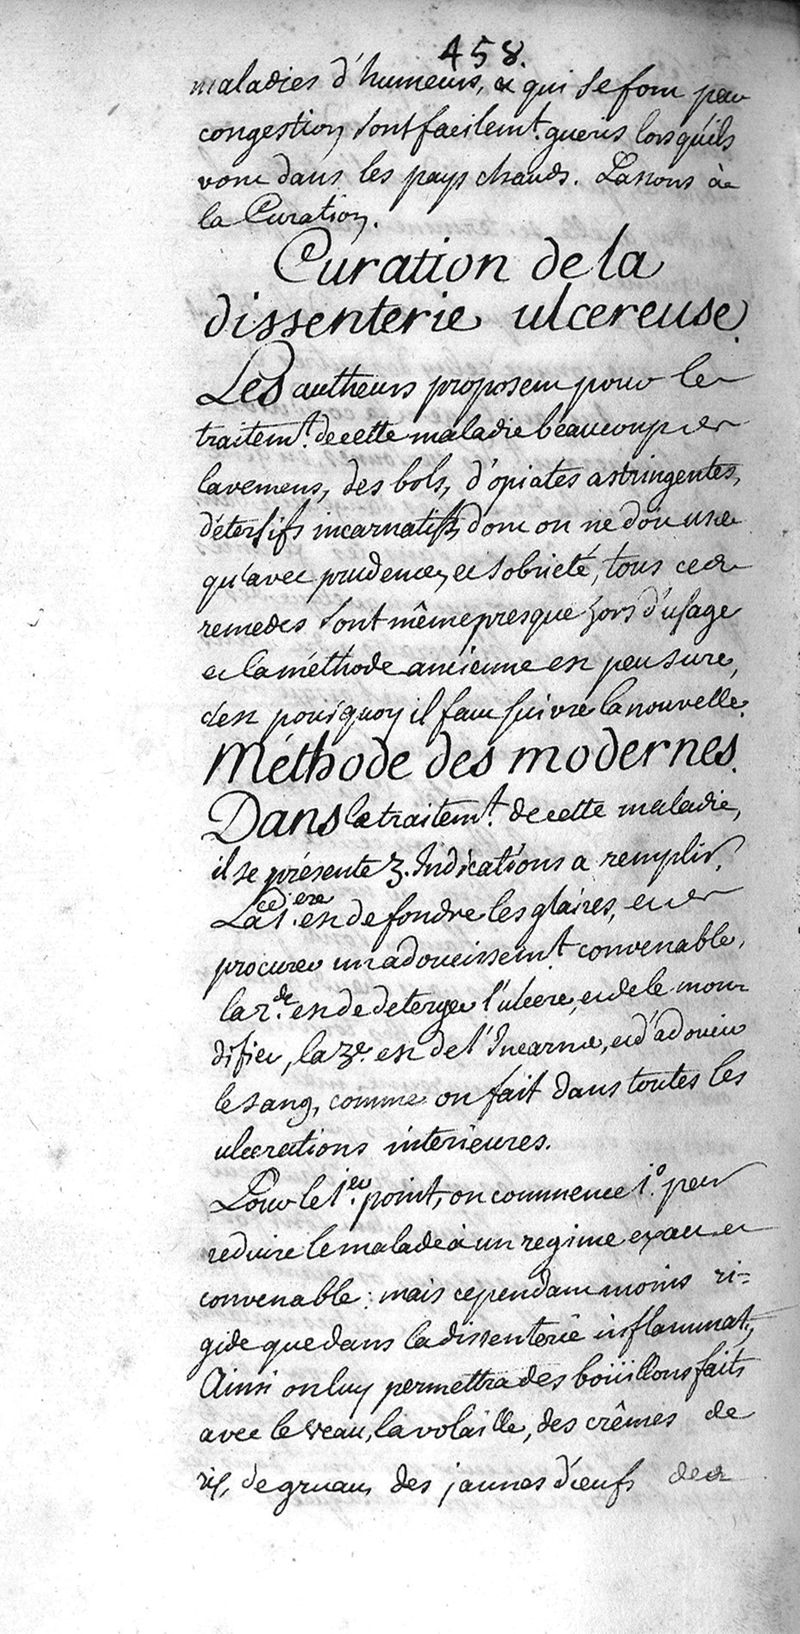 458.
maladies d'humeurs, & qui se font par
congestion sont facilemt. gueris lorsqu'ils
vont dans les pays chauds. Passons à
la Curation.
Curation de la
dissenterie ulcereuse.
Les autheurs proposent pour le
traitemt. de cette maladie beaucoup de
lavemens, des bols, d'opiates astringentes,
détersifs incarnatifs, dont on ne doit user
qu'avec prudence, et sobrieté, tous ces
remedes sont même presque hors d'usage
et la méthode ancienne est peu sure,
c'est pourquoy il faut suivre la nouvelle.
Méthode des modernes.
Dans le traitemt. de cette maladie,
il se présente 3. Indications a remplir.
La 1.ere est de fondre les glaires, et de
procurer un adoucissemt. convenable,
la 2.de est de deterger l'ulcere, et de le mon-
difier, la 3e. est de l'Incarner, et d'adoucir
le sang, comme on fait dans toutes les
ulcerations interieures.
Pour le 1.er point, on commence 1.º par
reduire le malade à un regime exact et
convenable : mais cependant moins ri=
gide que dans la dissenterie inflammat.,
Ainsi on luy permettra des boüillons faits
avec le veau, la volaille, des crêmes de
ris, de gruau, des jaunes d'œufs des